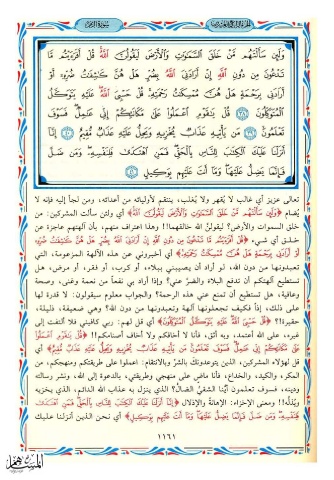 سورة الزمر
وَلَئِن سَأَلْتَهُم مَّنْ خَلَقَ السَّمَٰوَٰتِ وَالْأَرْضَ لَيَقُولُنَّ اللَّهُ قُلْ أَفَرَءَيْتُم مَّا
تَدْعُونَ مِن دُونِ اللَّهِ إِنْ أَرَادَنِيَ اللَّهُ بِضُرٍّ هَلْ هُنَّ كَٰشِفَٰتُ ضُرِّهِ أَوْ
أَرَادَنِي بِرَحْمَةٍ هَلْ هُنَّ مُمْسِكَٰتُ رَحْمَتِهِ قُلْ حَسْبِيَ اللَّهُ عَلَيْهِ يَتَوَكَّلُ
الْمُتَوَكِّلُونَ ٣٨ قُلْ يَٰقَوْمِ اعْمَلُوا عَلَىٰ مَكَانَتِكُمْ إِنِّي عَٰمِلٌ فَسَوْفَ
تَعْلَمُونَ ٣٩ مَن يَأْتِيهِ عَذَابٌ يُخْزِيهِ وَيَحِلُّ عَلَيْهِ عَذَابٌ مُّقِيمٌ ٤٠ إِنَّا
أَنزَلْنَا عَلَيْكَ الْكِتَٰبَ لِلنَّاسِ بِالْحَقِّ فَمَنِ اهْتَدَىٰ فَلِنَفْسِهِ وَمَن ضَلَّ
فَإِنَّمَا يَضِلُّ عَلَيْهَا وَمَا أَنتَ عَلَيْهِم بِوَكِيلٍ ٤١
تعالى عزيز أي غالب لا يُقهر ولا يُغلب، ينتقم لأوليائه من أعدائه، ومن لجأ إليه فإنه لا
يُضام ﴿وَلَئِن سَأَلْتَهُم مَّنْ خَلَقَ السَّمَٰوَٰتِ وَالْأَرْضَ لَيَقُولُنَّ اللَّهُ﴾ أي ولئن سألت المشركين: من
خلق السموات والأرض؟ ليقولُنَّ الله خالقهما!! وهذا اعتراف منهم، بأن آلهتهم عاجزة عن
خلق أي شيء ﴿قُلْ أَفَرَءَيْتُم مَّا تَدْعُونَ مِن دُونِ اللَّهِ إِنْ أَرَادَنِيَ اللَّهُ بِضُرٍّ هَلْ هُنَّ كَٰشِفَٰتُ ضُرِّهِ
أَوْ أَرَادَنِي بِرَحْمَةٍ هَلْ هُنَّ مُمْسِكَٰتُ رَحْمَتِهِ﴾ أي أخبروني عن هذه الآلهة المزعومة، التي
تعبدونها من دون الله، لو أراد أن يصيبني ببلاء، أو كرب، أو فقر، أو مرض، هل
تستطيع آلهتكم أن تدفع البلاء والضرَّ عني؟ وإذا أراد بي نفعاً من نعمة وغنى، وصحة
وعافية، هل تستطيع أن تمنع عني هذه الرحمة؟ والجواب معلوم سيقولون: لا قدرة لها
على ذلك، إذاً فكيف تجعلونها آلهة وتعبدونها من دون الله؟ وهي ضعيفة، ذليلة،
حقيرة!؟ ﴿قُلْ حَسْبِيَ اللَّهُ عَلَيْهِ يَتَوَكَّلُ الْمُتَوَكِّلُونَ﴾ أي قل لهم: ربي كافيني فلا ألتفت إلى
غيره، على الله أعتمد، وبه أثق، فأنا لا أخافكم ولا أخاف أصنامكم!! ﴿قُلْ يَٰقَوْمِ اعْمَلُوا
عَلَىٰ مَكَانَتِكُمْ إِنِّي عَٰمِلٌ فَسَوْفَ تَعْلَمُونَ مَن يَأْتِيهِ عَذَابٌ يُخْزِيهِ وَيَحِلُّ عَلَيْهِ عَذَابٌ مُّقِيمٌ﴾ أي
قل لهؤلاء المشركين، الذين يتوعدونك بالشرِّ وبالانتقام: اعملوا على طريقتكم ومنهجكم، من
المكر، والكيد، والخداع، فأنا ماضٍ على منهجي وطريقتي، بالدعوة إلى الله، ونشر رسالته
ودينه، فسوف تعلمون أينا الشقيُّ الضالُّ؟ الذي ينزل به عذاب الله الدائم، الذي يخزيه
ويُذلُّه!! ومعنى الإخزاء: الإهانةُ والإذلال ﴿إِنَّا أَنزَلْنَا عَلَيْكَ الْكِتَٰبَ لِلنَّاسِ بِالْحَقِّ فَمَنِ اهْتَدَىٰ
فَلِنَفْسِهِ وَمَن ضَلَّ فَإِنَّمَا يَضِلُّ عَلَيْهَا وَمَا أَنتَ عَلَيْهِم بِوَكِيلٍ﴾ أي نحن الذين أنزلنا عليك
١١٦١